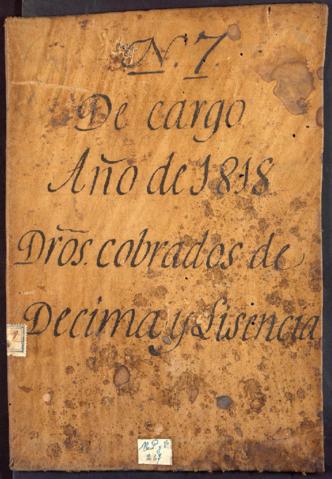 N. 7.
De cargo
Año de 1818
Dros. cobrados de
Decima y Lisencia